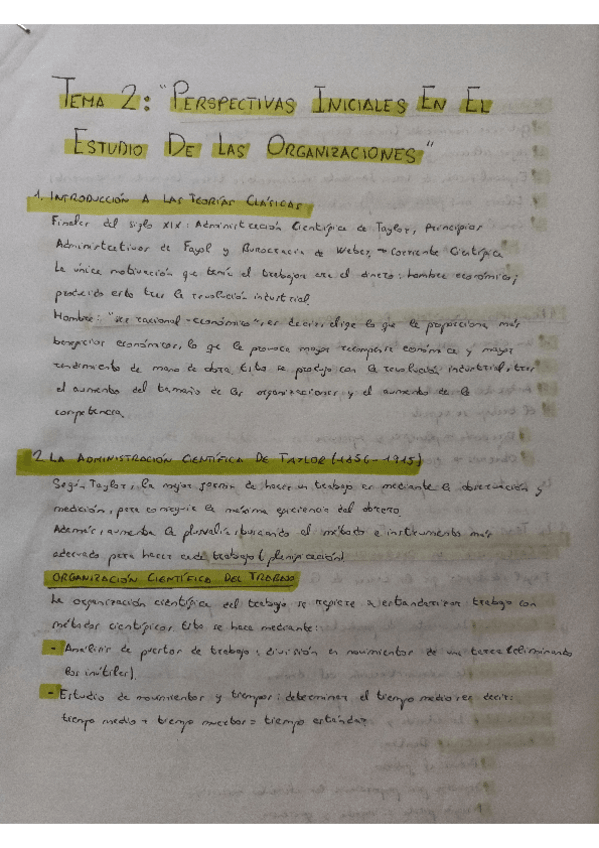 TEMA 2: "PERSPECTIVAS INICIALES EN EL
ESTUDIO DE LAS ORGANIZACIONES"
1. INTRODUCCIÓN A LAS TEORÍAS CLÁSICAS
Finales del siglo XIX: Administración Científica de Taylor, Principios
Administrativos de Fayol y Burocracia de Weber → Corriente Científica
La única motivación que tenía el trabajador era el dinero: hombre económico;
producido esto tras la revolución industrial
Hombre: "ser racional-económico", es decir, elige lo que le proporciona más
beneficios económicos, lo que le provoca mayor recompensa económica y mayor
rendimiento de mano de obra. Esto se produjo con la revolución industrial, tras
el aumento del tamaño de las organizaciones y el aumento de la
competencia.
2. LA ADMINISTRACIÓN CIENTÍFICA DE TAYLOR (1856-1915)
Según Taylor, la mejor forma de hacer un trabajo es mediante la observación y
medición, para conseguir la máxima eficiencia del obrero.
Además, aumenta la plusvalía, buscando el método e instrumento más
adecuado para hacer cada trabajo (planificación)
ORGANIZACIÓN CIENTÍFICA DEL TRABAJO
La organización científica del trabajo se refiere a estandarizar trabajo con
métodos científicos. Esto se hace mediante:
- Análisis de puestos de trabajo: división en movimientos de una tarea (eliminando
los inútiles).
- Estudio de movimientos y tiempos: determinar el tiempo medio, es decir:
tiempo medio + tiempo muertos = tiempo estándar